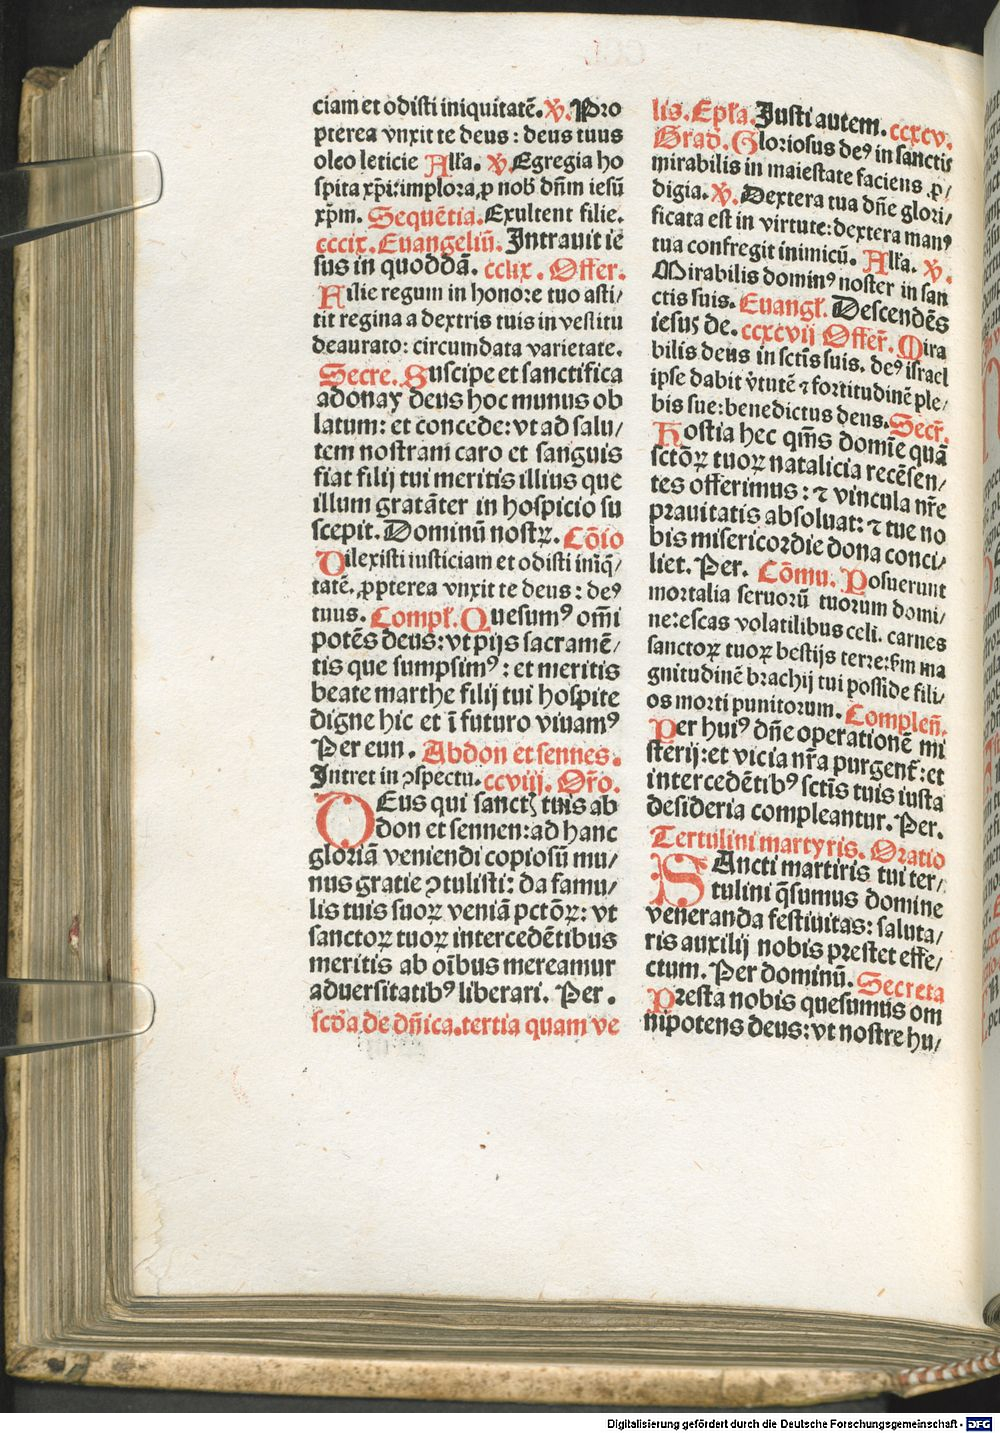 ciam et odisti iniquitatē. ꝟ. Pro
pterea vnxit te deus : deus tuus
oleo leticie Alła. ꝟ. Egregia ho
spita xp̄i: implora ꝓ nob̄ dn̄m iesū
xp̄m. Sequētia. Exultent filie.
cccix. Euangeliū. Intrauit ie
sus in quoddā. cclix. Offer.
Filie regum in honore tuo asti/
tit regina a dextris tuis in vestitu
deaurato: circumdata varietate.
Secre. Suscipe et sanctifica
adonay deus hoc munus ob
latum: et concede: vt ad salu/
tem nostram caro et sanguis
fiat filij tui meritis illius que
illum gratāter in hospicio su
scepit. Dominū nostꝝ. Cōio
Dilexisti iusticiam et odisti iniq̄/
tatē. ꝓpterea vnxit te deus : deꝰ
tuus. Compł. Quesumꝰ om̄i
potēs deus: vt pijs sacramē/
tis que sumpsimꝰ : et meritis
beate marthe filij tui hospite
digne hic et ī futuro viuamꝰ
Per eun. Abdon et sennes.
Intret in ꝯspectu. ccviij. Or̄o.
DEus qui sanctꝭ tuis ab
don et sennen: ad hanc
gloriā veniendi copiosū mu/
nus gratie ꝯtulisti: da famu/
lis tuis suoꝝ veniā pctōꝝ: vt
sanctoꝝ tuoꝝ intercedētibus
meritis ab oībus mereamur
aduersitatibꝰ liberari. Per.
scd̄a de dn̄ica. tertia quam ve
lis. Epl̄a. Justi autem. ccxcv.
Grad. Gloriosus deꝰ in sanctis
mirabilis in maiestate faciens ꝓ/
digia. ꝟ. Dextera tua dn̄e glori/
ficata est in virtute: dextera manꝰ
tua confregit inimicū. Alła. ꝟ.
Mirabilis dominꝰ noster in san
ctis suis. Euangł. Descendēs
iesus de. ccxcvij Offer̄. Mira
bilis deus in sct̄is suis. deꝰ israel
ipse dabit v̓tutē ⁊ fortitudinē ple/
bis sue: benedictus deus. Secr̄.
Hostia hec qm̄s domīe quā
sctōꝝ tuoꝝ natalicia recēsen/
tes offerimus : ⁊ vincula nr̄e
prauitatis absoluat: ⁊ tue no
bis misericordie dona conci/
liet. Per. Cōmu. Posuerunt
mortalia seruorū tuorum domi/
ne: escas volatilibus celi. carnes
sanctoꝝ tuoꝝ bestijs terre: scd̄m ma
gnitudinē brachij tui posside fili/
os morti punitorum. Complen̄.
Per huiꝰ dn̄e operationē mi
sterij: et vicia nr̄a purgent̄: et
intercedētibꝰ sct̄is tuis iusta
desideria compleantur. Per.
Tertulini martyris. Oratio
SAncti martiris tui ter/
tulini q̄sumus domine
veneranda festiuitas: saluta/
ris auxilij nobis prestet effe/
ctum. Per dominū. Secreta
Presta nobis quesumus om
nipotens deus: vt nostre hu/
Digitalisierung gefördert durch die Deutsche Forschungsgemeinschaft - DFG